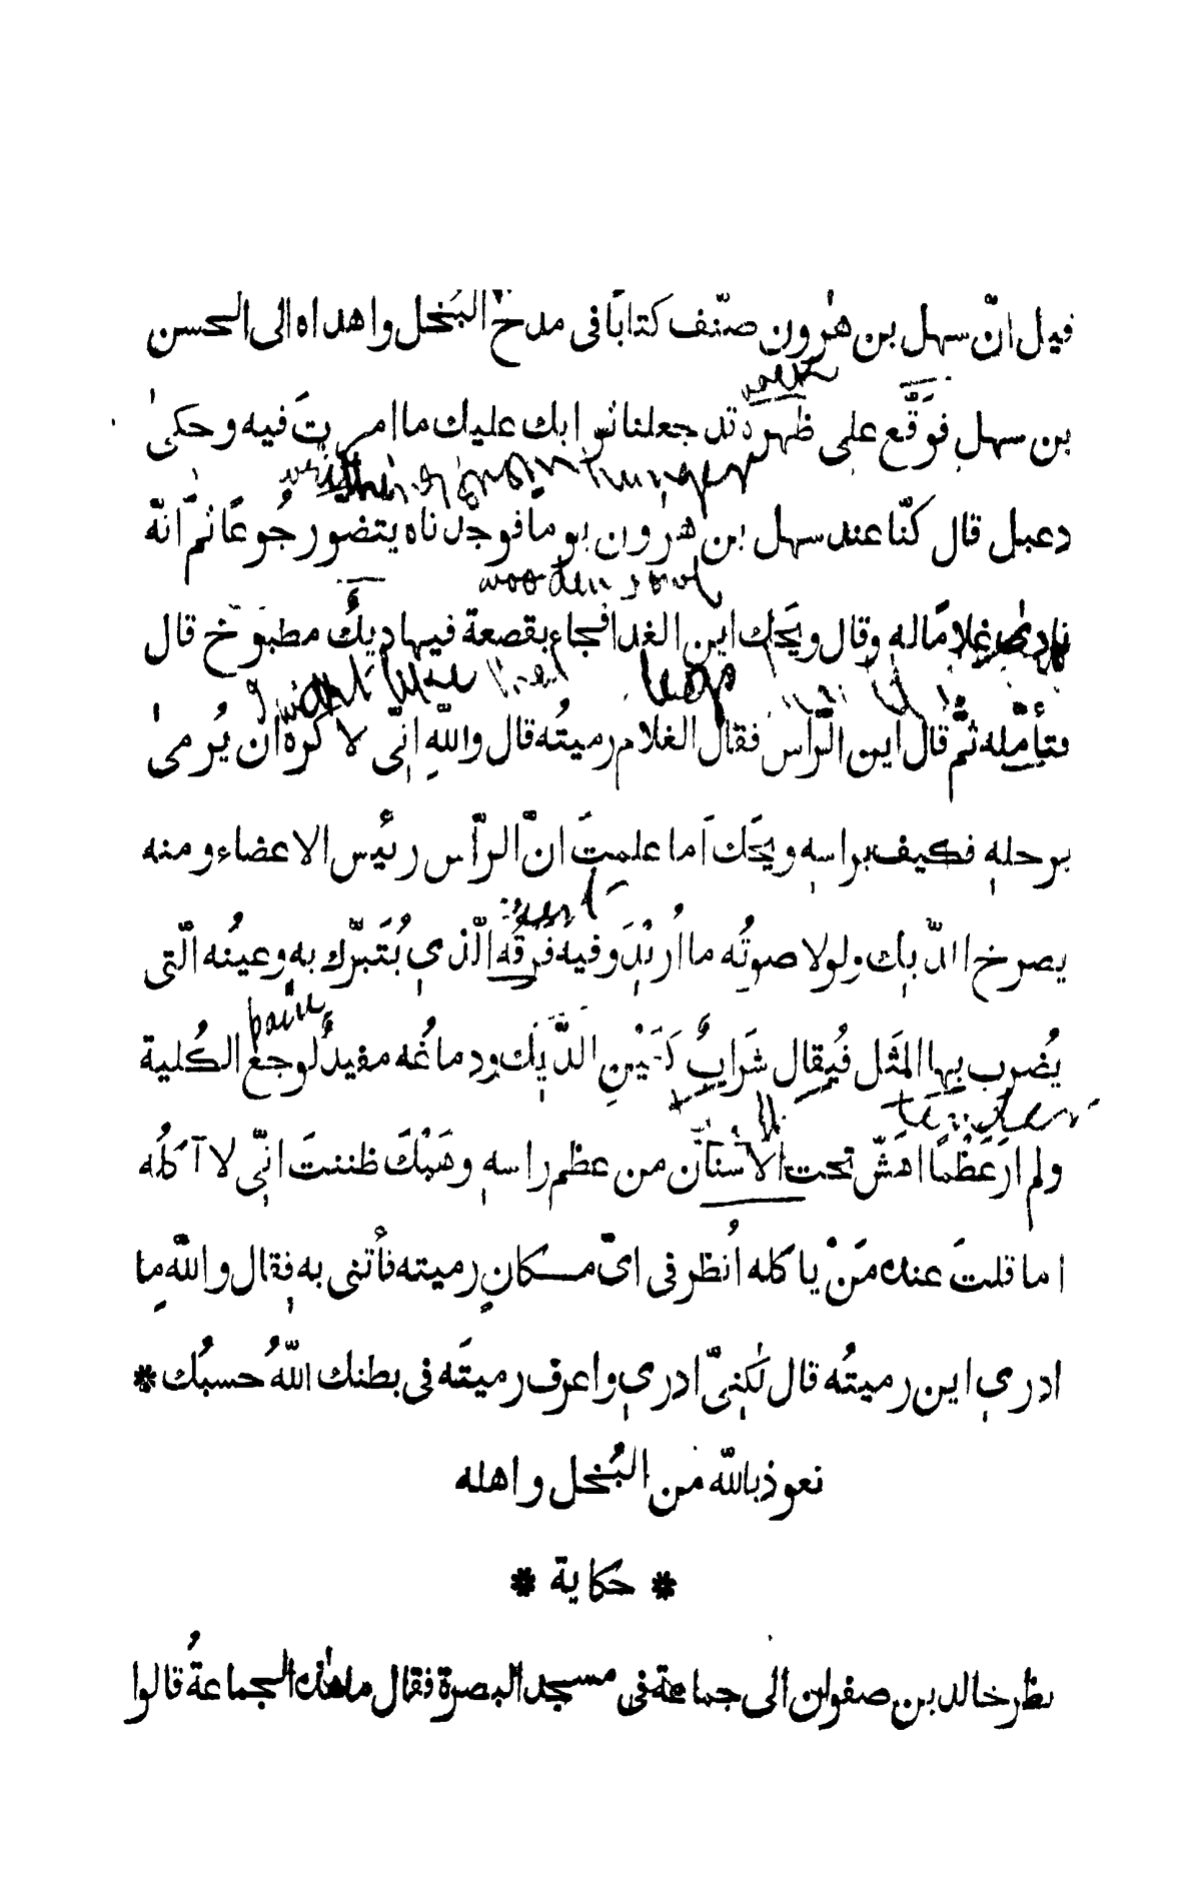 قيل انّ سهل بن هٰرون صنّف كتابًا فى مدح البُخل واهداه الى الحسن
بن سهل فوَقَّع على ظهره قد جعلنا ثوابك عليك ما امرتَ فيه وحكىٰ
wooden bowl
دعبل قال كنّا عند سهل بن هٰرون يومًا فوجدناه يتضوّر جُوعًا ثمّ انّه
نادىٰ غلامًا له وقال ويحَك اين الغدا فجاء بقصعة فيها ديكٌ مطبوخ قال
فتأمّله ثمّ قال اين الرّاس فقال الغلام رميتُه قال واللّهِ انِّى لا كرهُ ان يُرمىٰ
برجلهِ فكيف براسهِ ويحَك اَما علمتَ انّ الرّاس رئيس الاعضاء ومنه
يصرخ الدّيك ولولا صوتُه ما اُريْدَ وفيه فَرقُه الّذي يُتَبرّك به وعينُه الّتى
pain
يُضرب بها المثَل فيُقال شَرابٌ كعَيْنِ الدّيك ودماغُه مفيدٌ لوجع الكُلية
tender
ولم ارَ عَظْمًا اهشّ تحت الاَسْنان من عظم راسهِ وهَبْكَ ظننتَ انّى لا آكلُه
اما قلتَ عنده مَنْ ياكله اُنظر فى اىّ مكانٍ رميته فأتنى به فقال واللّه ما
ادري اين رميتُه قال لٰكنِّى ادري واعرف رميتَه فى بطنك اللّهُ حسبُك *
نعوذ باللّه من البُخل واهله
* حكاية *
نظر خالد بن صفوان الى جماعة فى مسجد البصرة فقال ما هٰذه الجماعةُ قالوا